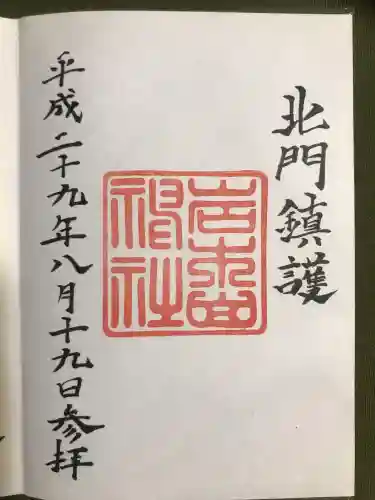 北門鎮護
岩木山
神社
平成二十九年八月十九日参拝